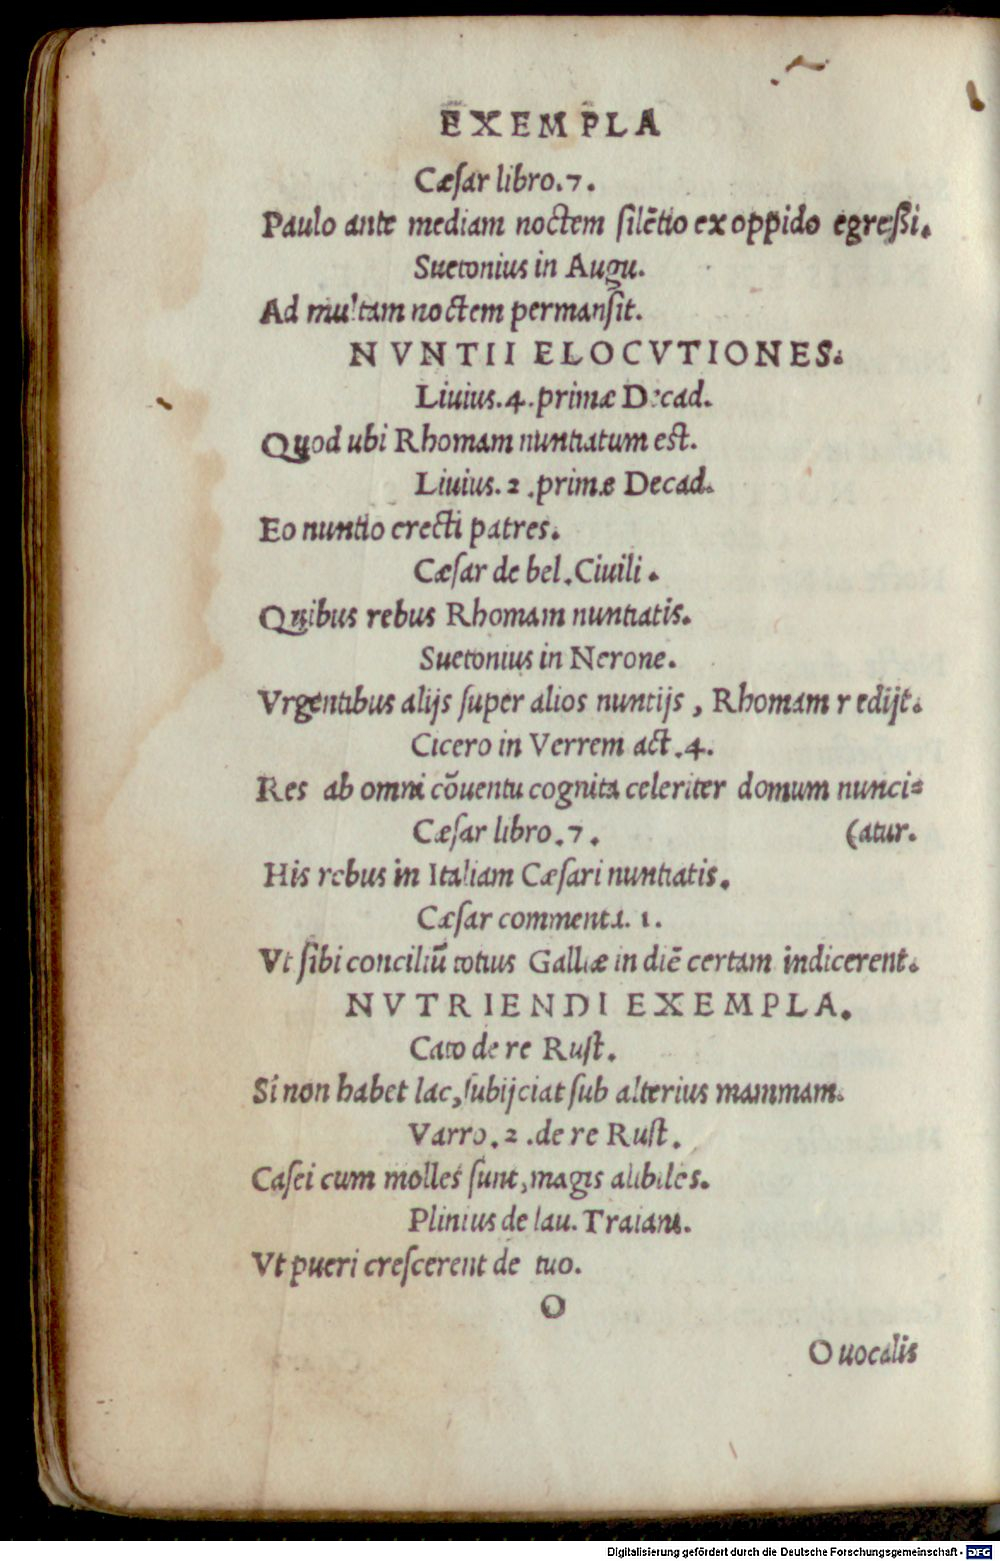 EXEMPLA
Cæſar libro.7.
Paulo ante mediam noctem ſilētio ex oppido egreßi.
Suetonius in Augu.
Ad multam noctem permanſit.
NVNTII ELOCVTIONES.
Liuius.4.primæ Decad.
Quod ubi Rhomam nuntiatum est.
Liuius.2.primæ Decad.
Eo nuntio erecti patres.
Cæſar de bel.Ciuili.
Quibus rebus Rhomam nuntiatis.
Suetonius in Nerone.
Vrgentibus alijs ſuper alios nuntijs, Rhomam redijt.
Cicero in Verrem act.4.
Res ab omni cōuentu cognita celeriter domum nunci=
Cæſar libro.7. (atur.
His rebus in Italiam Cæſari nuntiatis.
Cæſar commenta. 1.
Vt ſibi conciliū totius Galliæ in diē certam indicerent.
NVTRIENDI EXEMPLA.
Cato de re Ruſt.
Si non habet lac, ſubijciat ſub alterius mammam.
Varro.2.de re Ruſt.
Caſei cum molles ſunt, magis alibiles.
Plinius de lau. Traiani.
Vt pueri creſcerent de tuo.
O
O uocalis
Digitalisierung gefördert durch die Deutsche Forschungsgemeinschaft - DFG